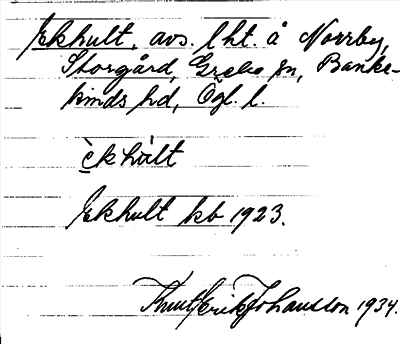 Ekhult, avs. lht. å Norrby,
Storgård, Grebo sn, Banke-
kinds hd, Ögl. l.
èkhàlt
Ekhult kb 1923.
Knut Erik Johansson 1934.